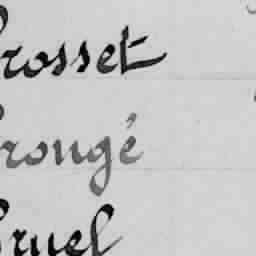 rosset
rougé
ruel